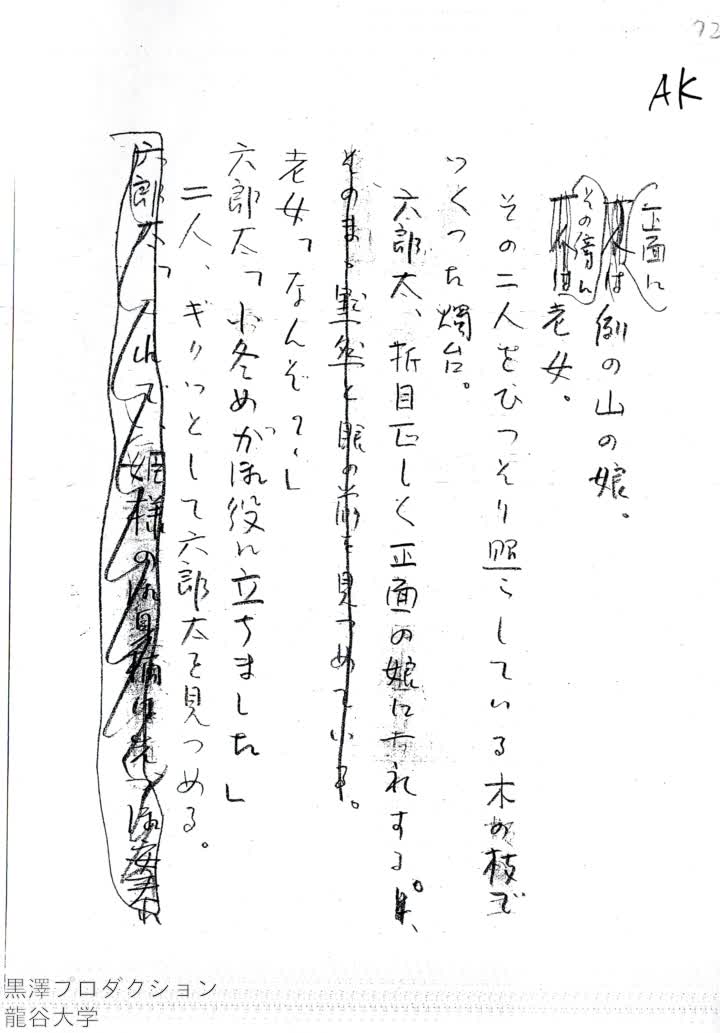 72
AK
正面に
は例の山の娘。
その傍に
老女。
その二人をひっそり照らしている木の枝で
つくった燭台。
六郎太、折目正しく正面の娘に一礼する。
そのまゝ黙然と眼の前を見つめている。
老女「なんぞ?」
六郎太「小冬めがお役に立ちました」
二人、ギクッとして六郎太を見つめる。
六郎太「これで、姫様の御身柄は先づ御安泰
黒澤プロダクション
龍谷大学